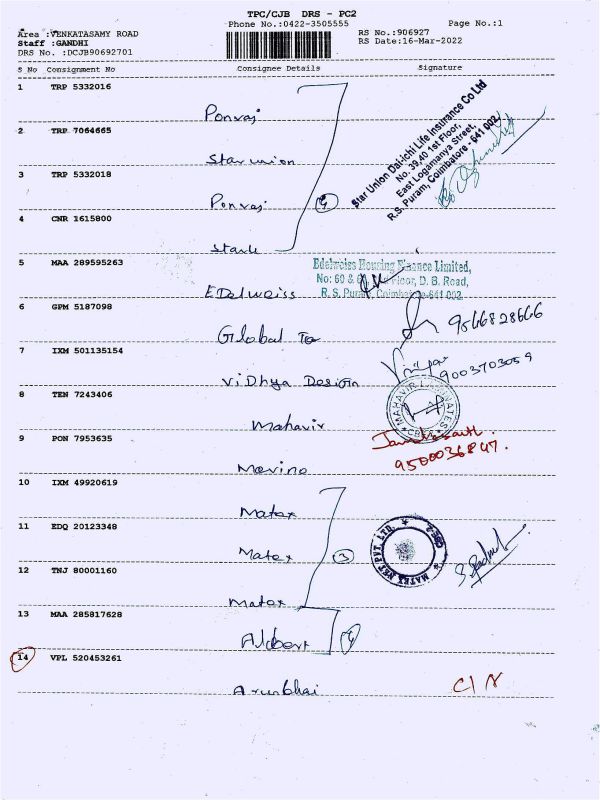 TPC/CJB DRS - PC2
Phone No.:0422-3505555
Page No.:1
Area :VENKATASAMY ROAD
Staff :GANDHI
DRS No. :DCJB90692701
RS No.:906927
RS Date:16-Mar-2022
S No Consignment No Consignee Details Signature
1 TRP 5332016
Ponraj
2 TRP 7064665
Star union
3 TRP 5332018
Ponraj
4 CNR 1615800
Star Union Dai-ichi Life Insurance Co Ltd
No. 39,40 1st Floor,
East Logamanya Street,
R.S. Puram, Coimbatore - 641 002
5 MAA 289595263
Edelweiss
Edelweiss Housing Finance Limited,
No: 60 & Floor, D. B. Road,
R. S. Puram, Coimbatore-641 002.
6 GPM 5187098
Global
9566828666
7 IXM 501135154
ViDhya Design
9003703059
8 TEN 7243406
Mahavir
MAHAVIR
CBE
9 PON 7953635
9500036847.
10 IXM 49920619
Matex
11 EDQ 20123348
Matex
3
PVT. LTD.
12 TNJ 80001160
Matex
13 MAA 285817628
Albert
14 VPL 520453261
Arunbhai